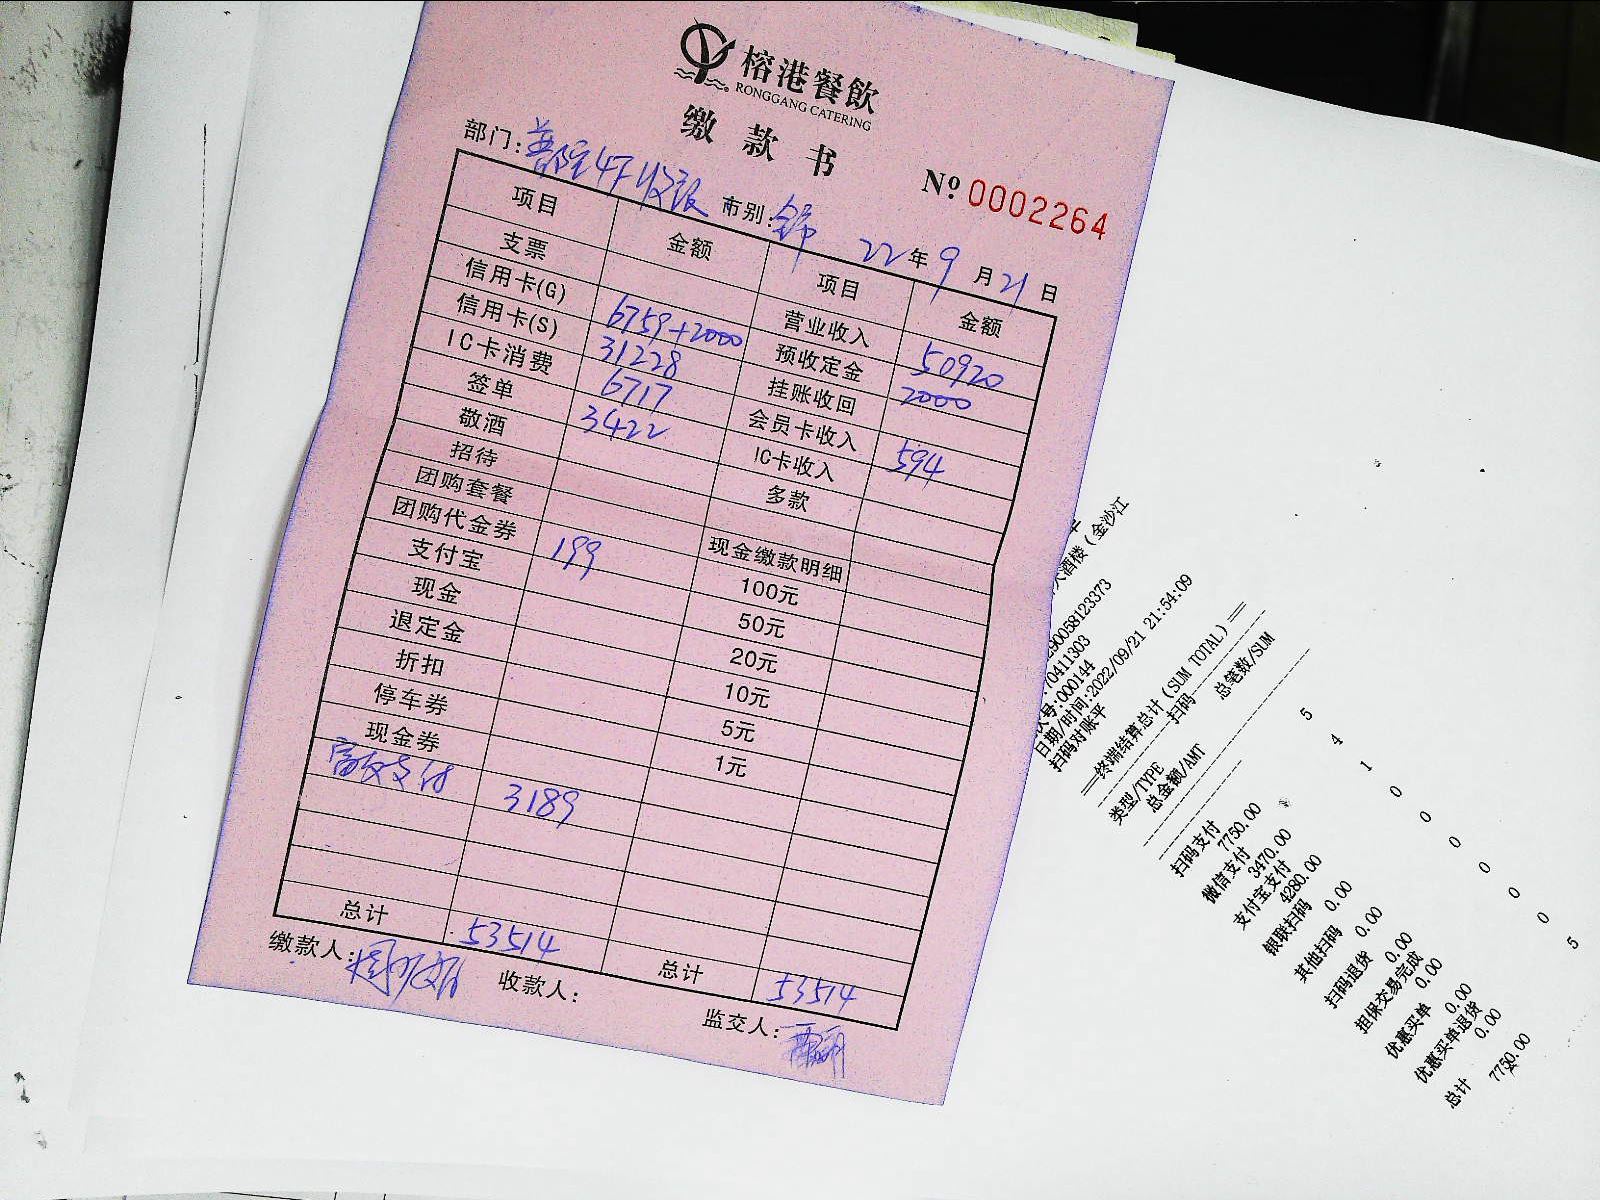 榕港餐飲
RONGGANG CATERING
缴款书
№ 0002264
部门: 4F收银 市别: 22年9月21日
项目 金额 项目 金额
支票 营业收入 50920
信用卡(G) 6759+2000 预收定金 2000
信用卡(S) 31228 挂账收回
IC卡消费 6717 会员卡收入 594
签单 3422 IC卡收入
敬酒 多款
招待
团购套餐 现金缴款明细
团购代金券 199 100元
支付宝 50元
现金 20元
退定金 10元
折扣 5元
停车券 1元
现金券
支付 3189
总计 53514 总计 53514
缴款人: 收款人: 监交人:
大酒楼（金沙江
290058123373
70411303
次号:000144
日期/时间:2022/09/21 21:54:09
扫码对账平
══终端结算总计（SUM TOTAL）══
扫码
类型/TYPE 总笔数/SUM
总金额/AMT
扫码支付 5
7750.00
微信支付 4
3470.00
支付宝支付 1
4280.00
银联扫码 0
0.00
其他扫码 0
0.00
扫码退货 0
0.00
担保交易完成 0
0.00
优惠买单 0
0.00
优惠买单退货 0
0.00
总计 5
7750.00